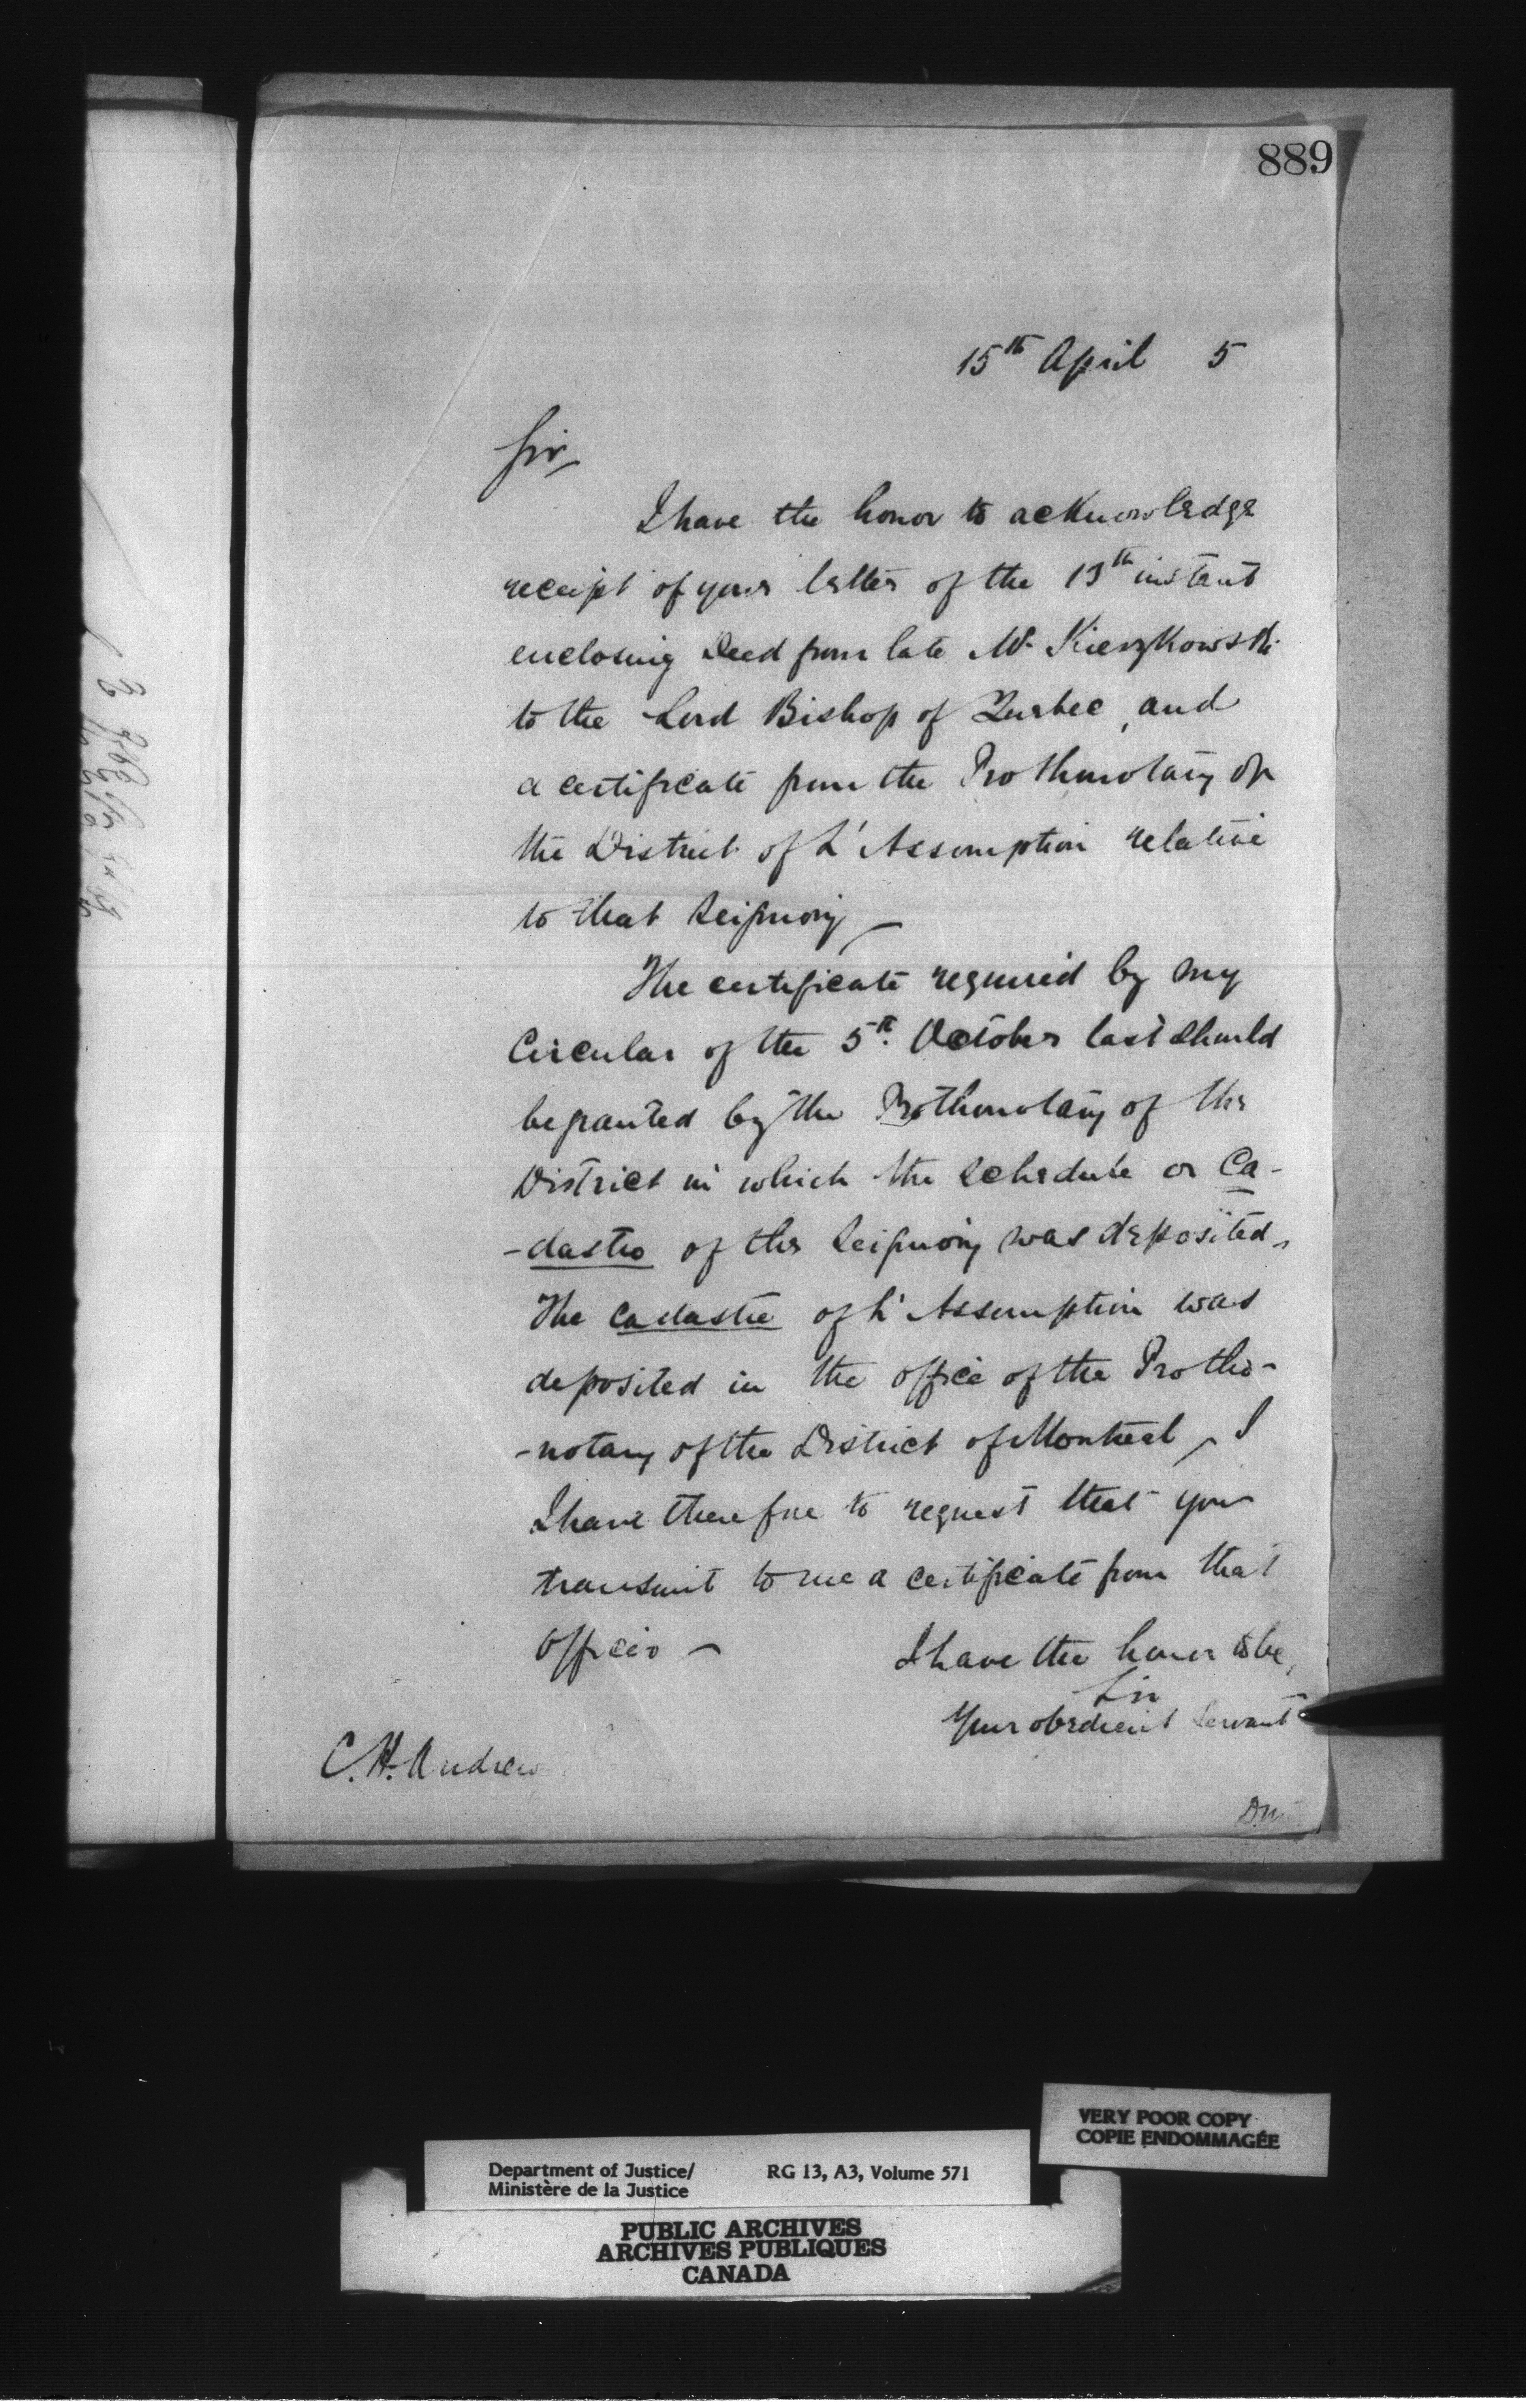 889
15th April 5
Sir,
I have the honor to acknowledge
receipt of your letter of the 13th instant
enclosing Deed from late Mr. Kierzkowski
to the Lord Bishop of Quebec, and
a certificate from the Prothonotary of
the District of L'Assomption relative
to that Seigniory —
The certificate required by my
Circular of the 5th October last should
be granted by the Prothonotary of the
District in which the Schedule or Ca-
-dastre of the Seigniory was deposited.
The Cadastre of L'Assomption was
deposited in the office of the Protho-
-notary of the District of Montreal, I
I have therefore to request that you
transmit to me a certificate from that
officer —
I have the honor to be,
Sir
Your obedient Servant
C. H. Andrew
VERY POOR COPY
COPIE ENDOMMAGÉE
Department of Justice/ RG 13, A3, Volume 571
Ministère de la Justice
PUBLIC ARCHIVES
ARCHIVES PUBLIQUES
CANADA